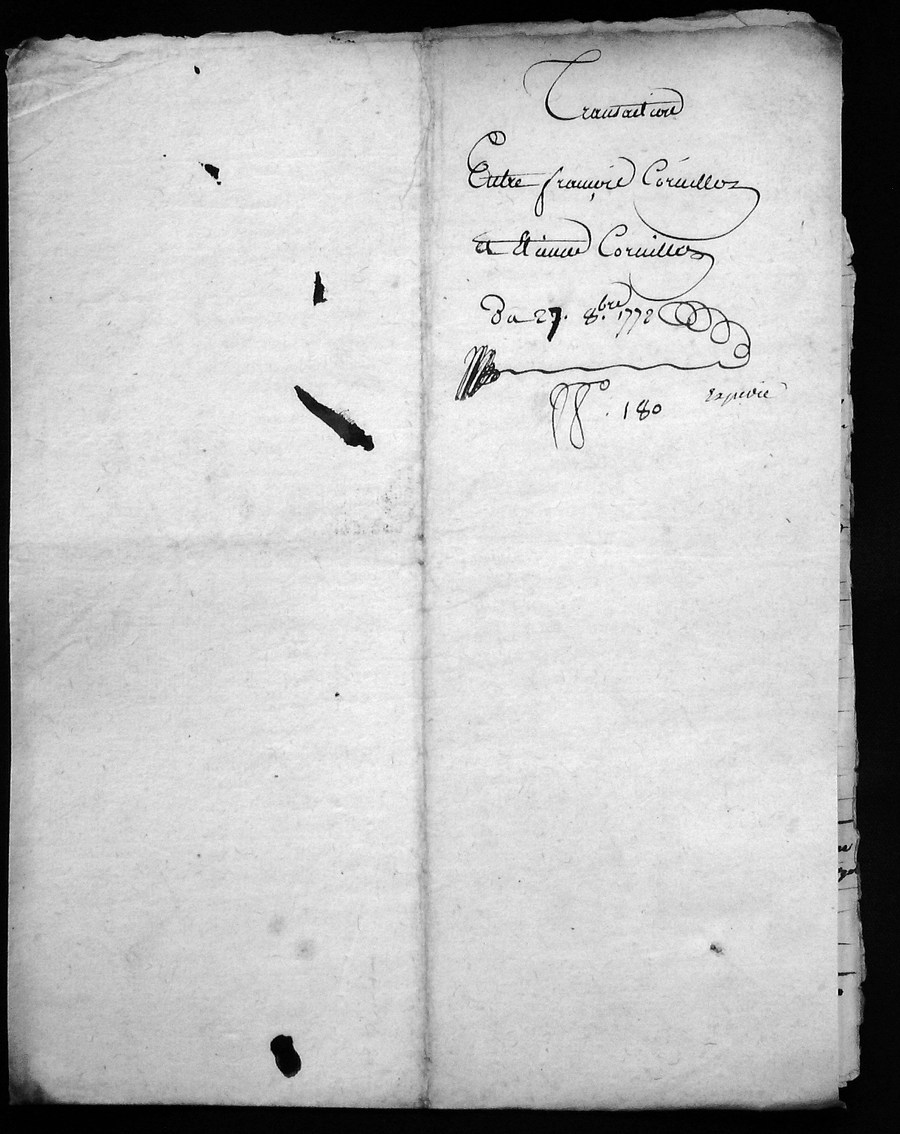 Transaction
Entre françois Cornillon
et Etienne Cornillon
Du 27. 8.bre 1772
N.o 180